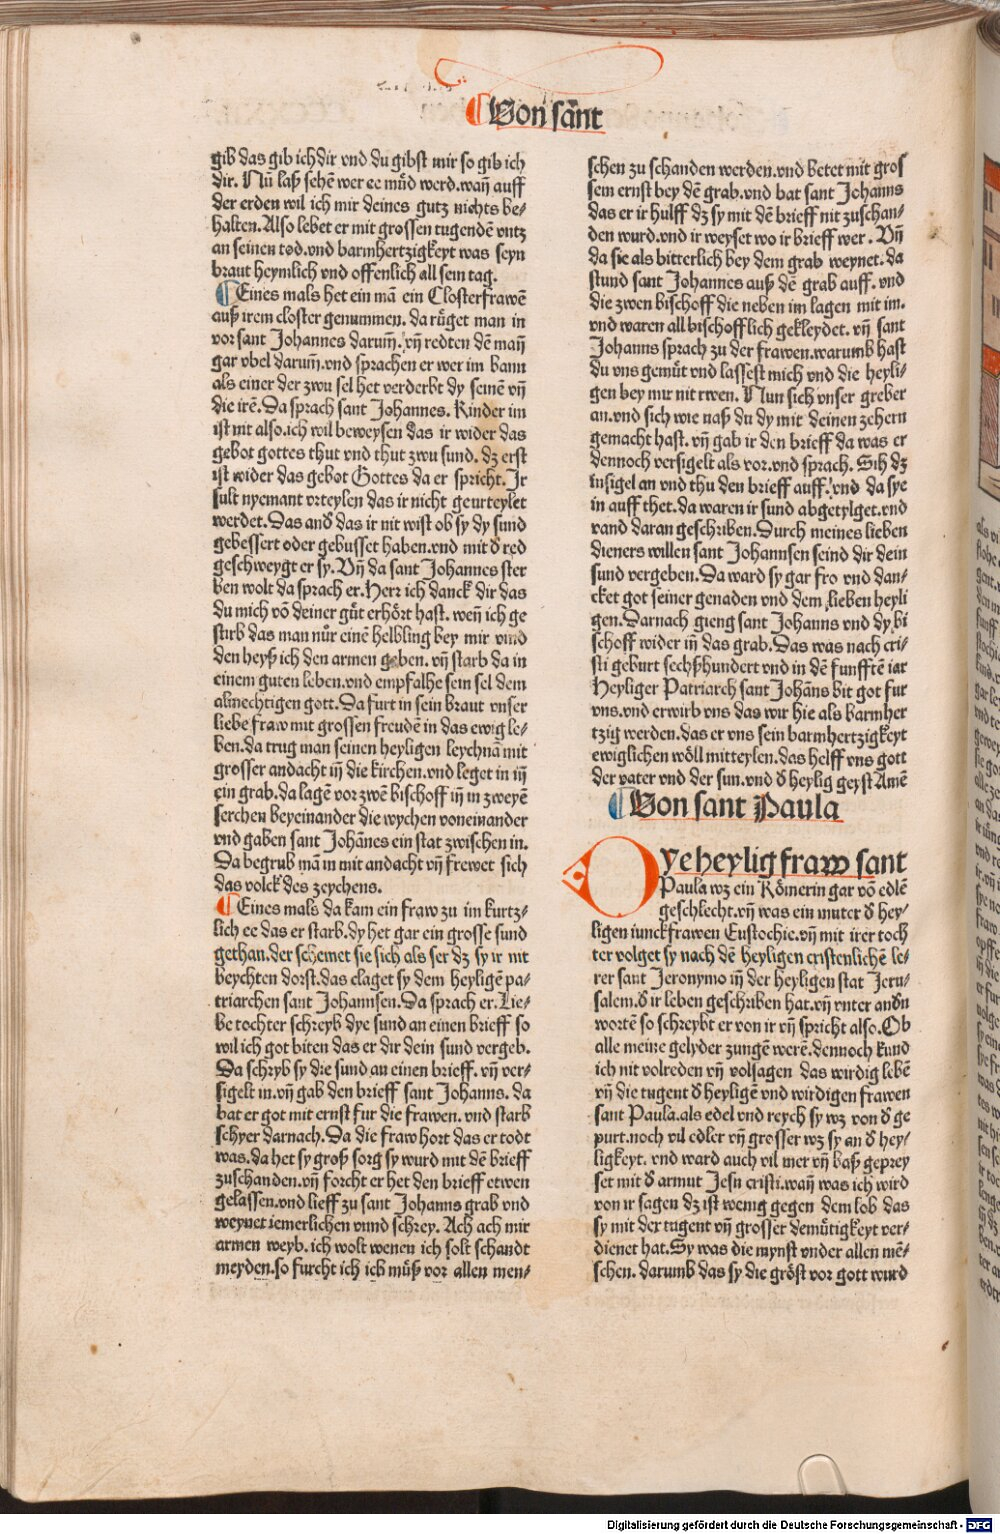 Von sãnt
gib das gib ich dir vnd du gibst mir so gib ich
dir. Nũ laß sehẽ wer ee mu̎d werd. wañ auff
der erden wil ich mir deines gutz nichts be-
halten. Also lebet er mit grossen tugendẽ vntz
an seinen tod. vnd barmhertzigkeyt was seyn
braut heymlich vnd offenlich all sein tag.
Eines mals het ein mã ein Closterfrawẽ
auß irem closter genummen. da ru̎get man in
vor sant Johannes darum̃. vñ redten dẽ mañ
gar vbel darum̃. vnd sprachen er wer im bann
als einer der zwu sel het verderbt dy seinẽ vñ
die irẽ. Da sprach sant Johannes. Kinder im
ist nit also. ich wil beweysen das ir wider das
gebot gottes thut vnd thut zwu sund. dz erst
ist wider das gebot Gottes da er spricht. Jr
sult nyemant vrteylen das ir nicht geurteylet
werdet. Das and̃ das ir nit wist ob sy dy sund
gebessert oder gebusset haben. vnd mit d̃ red
geschweygt er sy. Vñ da sant Johannes ster
ben wolt da sprach er. Herr ich danck dir das
du mich võ deiner gu̎t erho̎rt hast. weñ ich ge
stirb das man nu̎r einẽ helbling bey mir vind
den heyß ich den armen geben. vñ starb da in
einem guten leben. vnd empfalhe sein sel dem
almechtigen gott. Da furt in sein braut vnser
liebe fraw mit grossen freudẽ in das ewig le-
ben. da trug man seinen heyligen leychnã mit
grosser andacht iñ die kirchen. vnd leget in iñ
ein grab. da lagẽ vor zwẽ bischoff iñ in zweyẽ
serchen beyeinander die wychen voneinander
vnd gaben sant Johãnes ein stat zwischen in.
Da begrub mã in mit andacht vñ frewet sich
das volck des zeychens.
Eines mals da kam ein fraw zu im kurtz-
lich ee das er starb. dy het gar ein grosse sund
gethan. der schemet sie sich als ser dz sy ir nit
beychten dorst. das claget sy dem heyligẽ pa-
triarchen sant Johannsen. Da sprach er. Lie-
be tochter schreyb dye sund an einen brieff so
wil ich got biten das er dir dein sund vergeb.
Da schryb sy die sund an einen brieff. vñ ver-
sigelt in. vñ gab den brieff sant Johanns. da
bat er got mit ernst fur die frawen. vnd starb
schyer darnach. Da die fraw hort das er todt
was. da het sy groß sorg sy wurd mit dẽ brieff
zuschanden. vñ forcht er het den brieff etwen
gelassen. vnd lieff zu sant Johanns grab vnd
weynet iemerlichen vnnd schrey. Ach ach mir
armen weyb. ich wolt wenen ich solt schandt
meyden. so furcht ich ich mu̎ß vor allen men-
schen zu schanden werden. vnd betet mit gros
sem ernst bey dẽ grab. vnd bat sant Johanns
das er ir hulff dz sy mit dẽ brieff nit zuschan-
den wurd. vnd ir weyset wo ir brieff wer. Vñ
da sie als bitterlich bey dem grab weynet. da
stund sant Johannes auß dẽ grab auff. vnd
die zwen bischoff die neben im lagen mit im.
vnd waren all bischofflich gekleydet. vñ sant
Johanns sprach zu der frawen. warumb hast
du vns gemu̎t vnd lassest mich vnd die heyli-
gen bey mir nit rwen. Nun sich vnser greber
an. vnd sich wie naß du dy mit deinen zehern
gemacht hast. vñ gab ir den brieff da was er
dennoch versigelt als vor. vnd sprach. Sih dz
insigel an vnd thu den brieff auff. vnd da sye
in auff thet. da waren ir sund abgetylget. vnd
vand daran geschriben. Durch meines lieben
dieners willen sant Johannsen seind dir dein
sund vergeben. Da ward sy gar fro vnd dan-
cket got seiner genaden vnd dem lieben heyli
gen. Darnach gieng sant Johanns vnd dy bi
schoff wider iñ das grab. Das was nach cri-
sti geburt sechßhundert vnd in dẽ funfftẽ iar
Heyliger Patriarch sant Johãns bit got fur
vns. vnd erwirb vns das wir hie als barmher
tzig werden. das er vns sein barmhertzigkeyt
ewiglichen wo̎ll mitteylen. das helff vns gott
der vater vnd der sun. vnd d̃ heylig geyst Amẽ
Von sant Paula
Dye heylig fraw sant
Paula wz ein Ro̎merin gar võ edlẽ
geschlecht. vñ was ein muter d̃ hey-
ligen iunckfrawen Eustochie. vñ mit irer toch
ter volget sy nach dẽ heyligen cristenlichẽ le-
rer sant Jeronymo iñ der heyligen stat Jeru-
salem. d̃ ir leben geschriben hat. vñ vnter and̃n
wortẽ so schreybt er von ir vñ spricht also. Ob
alle meine gelyder zungẽ werẽ. dennoch kund
ich nit volreden vñ volsagen das wirdig lebẽ
vñ die tugent d̃ heyligẽ vnd wirdigen frawen
sant Paula. als edel vnd reych sy wz von d̃ ge
purt. noch vil edler vñ grosser wz sy an d̃ hey-
ligkeyt. vnd ward auch vil mer vñ baß geprey
set mit d̃ armut Jesu cristi. wañ was ich wird
von ir sagen dz ist wenig gegen dem lob das
sy mit der tugent vñ grosser demu̎tigkeyt ver-
dienet hat. Sy was die mynst vnder allen mẽ-
schen. darumb das sy die gro̎st vor gott wurd
Digitalisierung gefördert durch die Deutsche Forschungsgemeinschaft - DFG